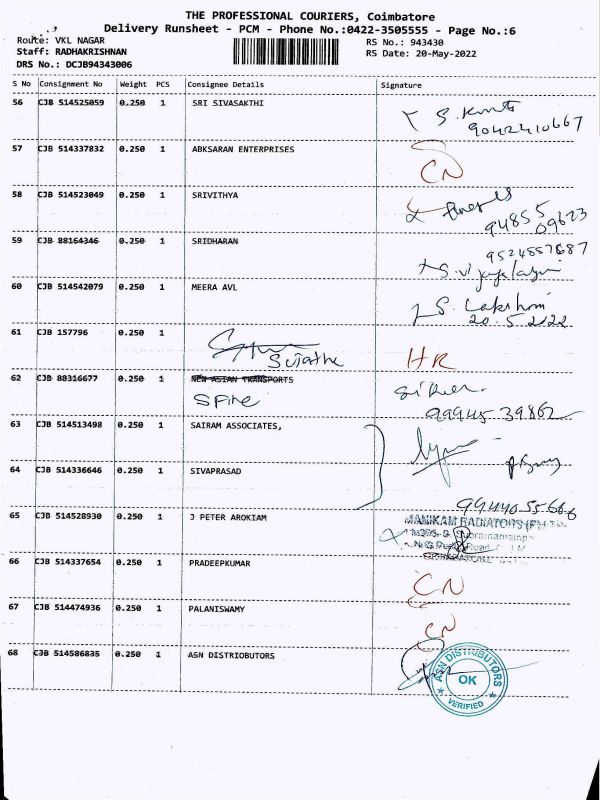 THE PROFESSIONAL COURIERS, Coimbatore
Delivery Runsheet - PCM - Phone No.:0422-3505555 - Page No.:6
Route: VKL NAGAR
Staff: RADHAKRISHNAN
DRS No.: DCJB94343006
RS No.: 943430
RS Date: 20-May-2022
S No Consignment No Weight PCS Consignee Details Signature
56 CJB 514525059 0.250 1 SRI SIVASAKTHI
9042410667
57 CJB 514337832 0.250 1 ABKSARAN ENTERPRISES CN
58 CJB 514523049 0.250 1 SRIVITHYA
94855 09623
59 CJB 88164346 0.250 1 SRIDHARAN
9524857687
60 CJB 514542079 0.250 1 MEERA AVL S. Lakshmi
20.5.2022
61 CJB 157796 0.250 1 Sujatha HR
62 CJB 88316677 0.250 1 NEW ASIAN TRANSPORTS
Spire
99945 39862
63 CJB 514513498 0.250 1 SAIRAM ASSOCIATES,
64 CJB 514336646 0.250 1 SIVAPRASAD
9944055666
65 CJB 514528930 0.250 1 J PETER AROKIAM MANIKAM RADIATORS
66 CJB 514337654 0.250 1 PRADEEPKUMAR CN
67 CJB 514474936 0.250 1 PALANISWAMY CN
68 CJB 514586835 0.250 1 ASN DISTRIOBUTORS
ASN DISTRIBUTORS
OK
VERIFIED